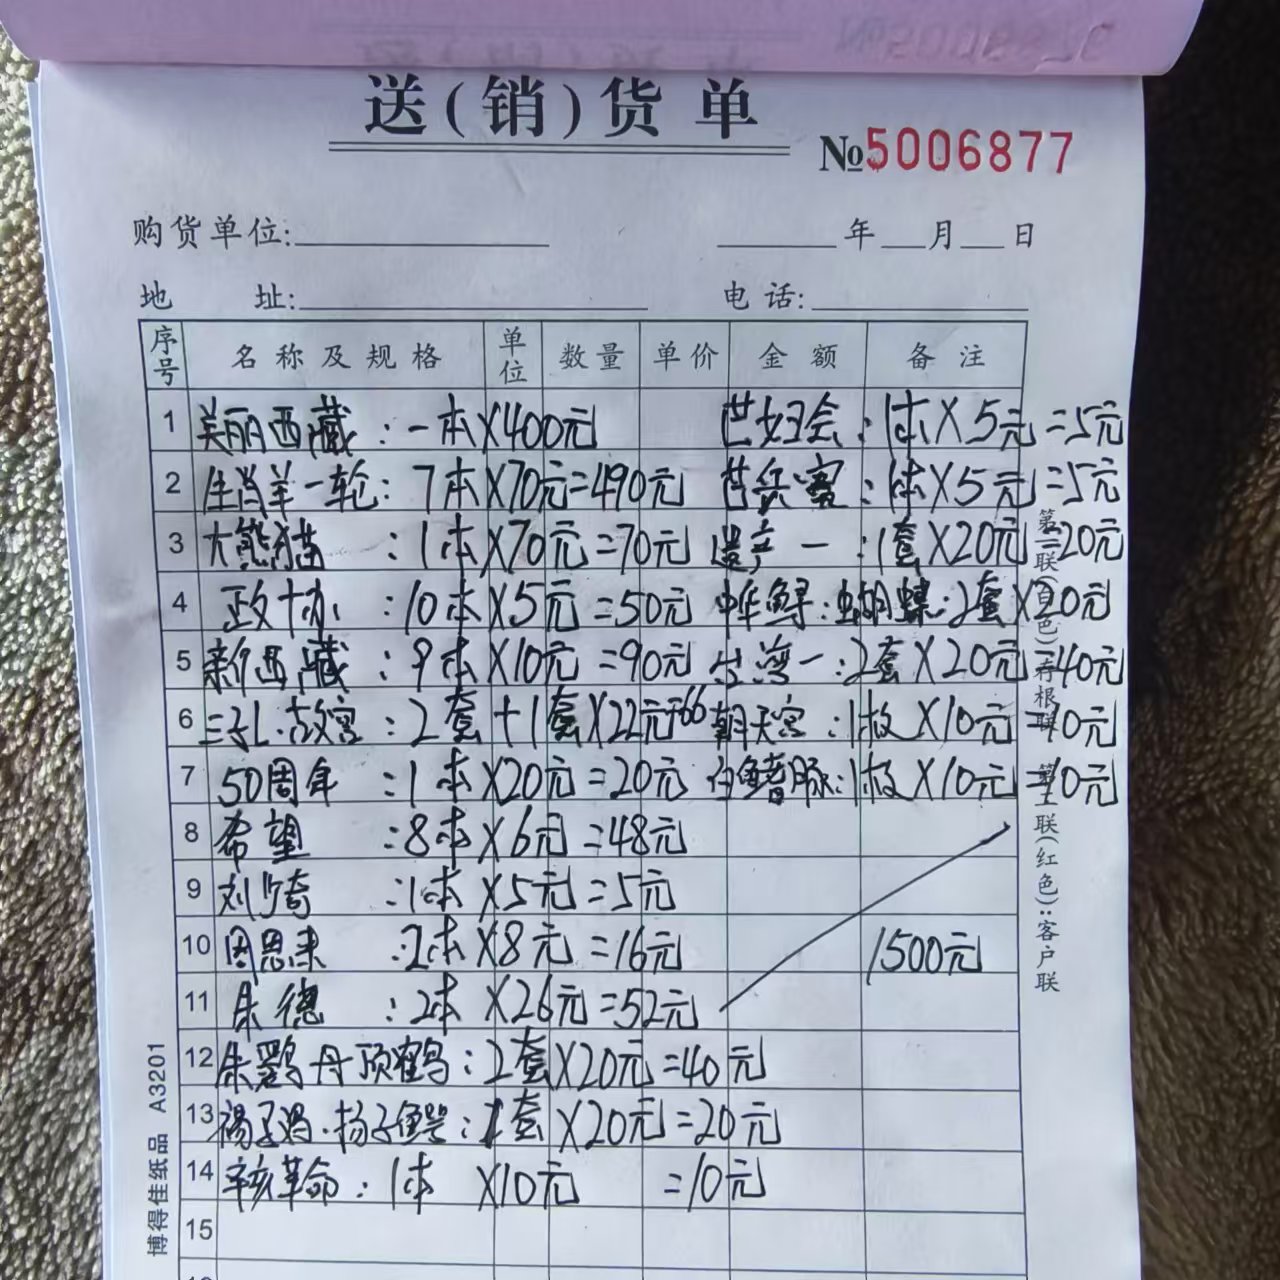 送(销)货单
№5006877
购货单位: 年 月 日
地 址: 电话:
序号 名称及规格 单位 数量 单价 金额 备注
1 美丽西藏:一本×400元 世妇会:1本×5元=5元
2 生肖羊一轮:7本×70元=490元 世乒赛:1本×5元=5元
3 大熊猫:1本×70元=70元 遗产一:1套×20元=20元
4 政协:10本×5元=50元 中华鲟:蝴蝶:2套×20元
5 新西藏:9本×10元=90元 台湾一:2套×20元=40元
6 三孔·故宫:2套+1套×22元=66 朝天宫:1枚×10元=10元
7 50周年:1本×20元=20元 白鳍豚:1枚×10元=10元
8 希望:8本×6元=48元
9 刘少奇:1本×5元=5元
10 周恩来:2本×8元=16元 1500元
11 朱德:2本×26元=52元
12 朱鹮丹顶鹤:2套×20元=40元
13 褐马鸡·扬子鳄:1套×20元=20元
14 辛亥革命:1本×10元=10元
15
第一联(白色):存根联 第二联(红色):客户联
博得佳纸品 A3201